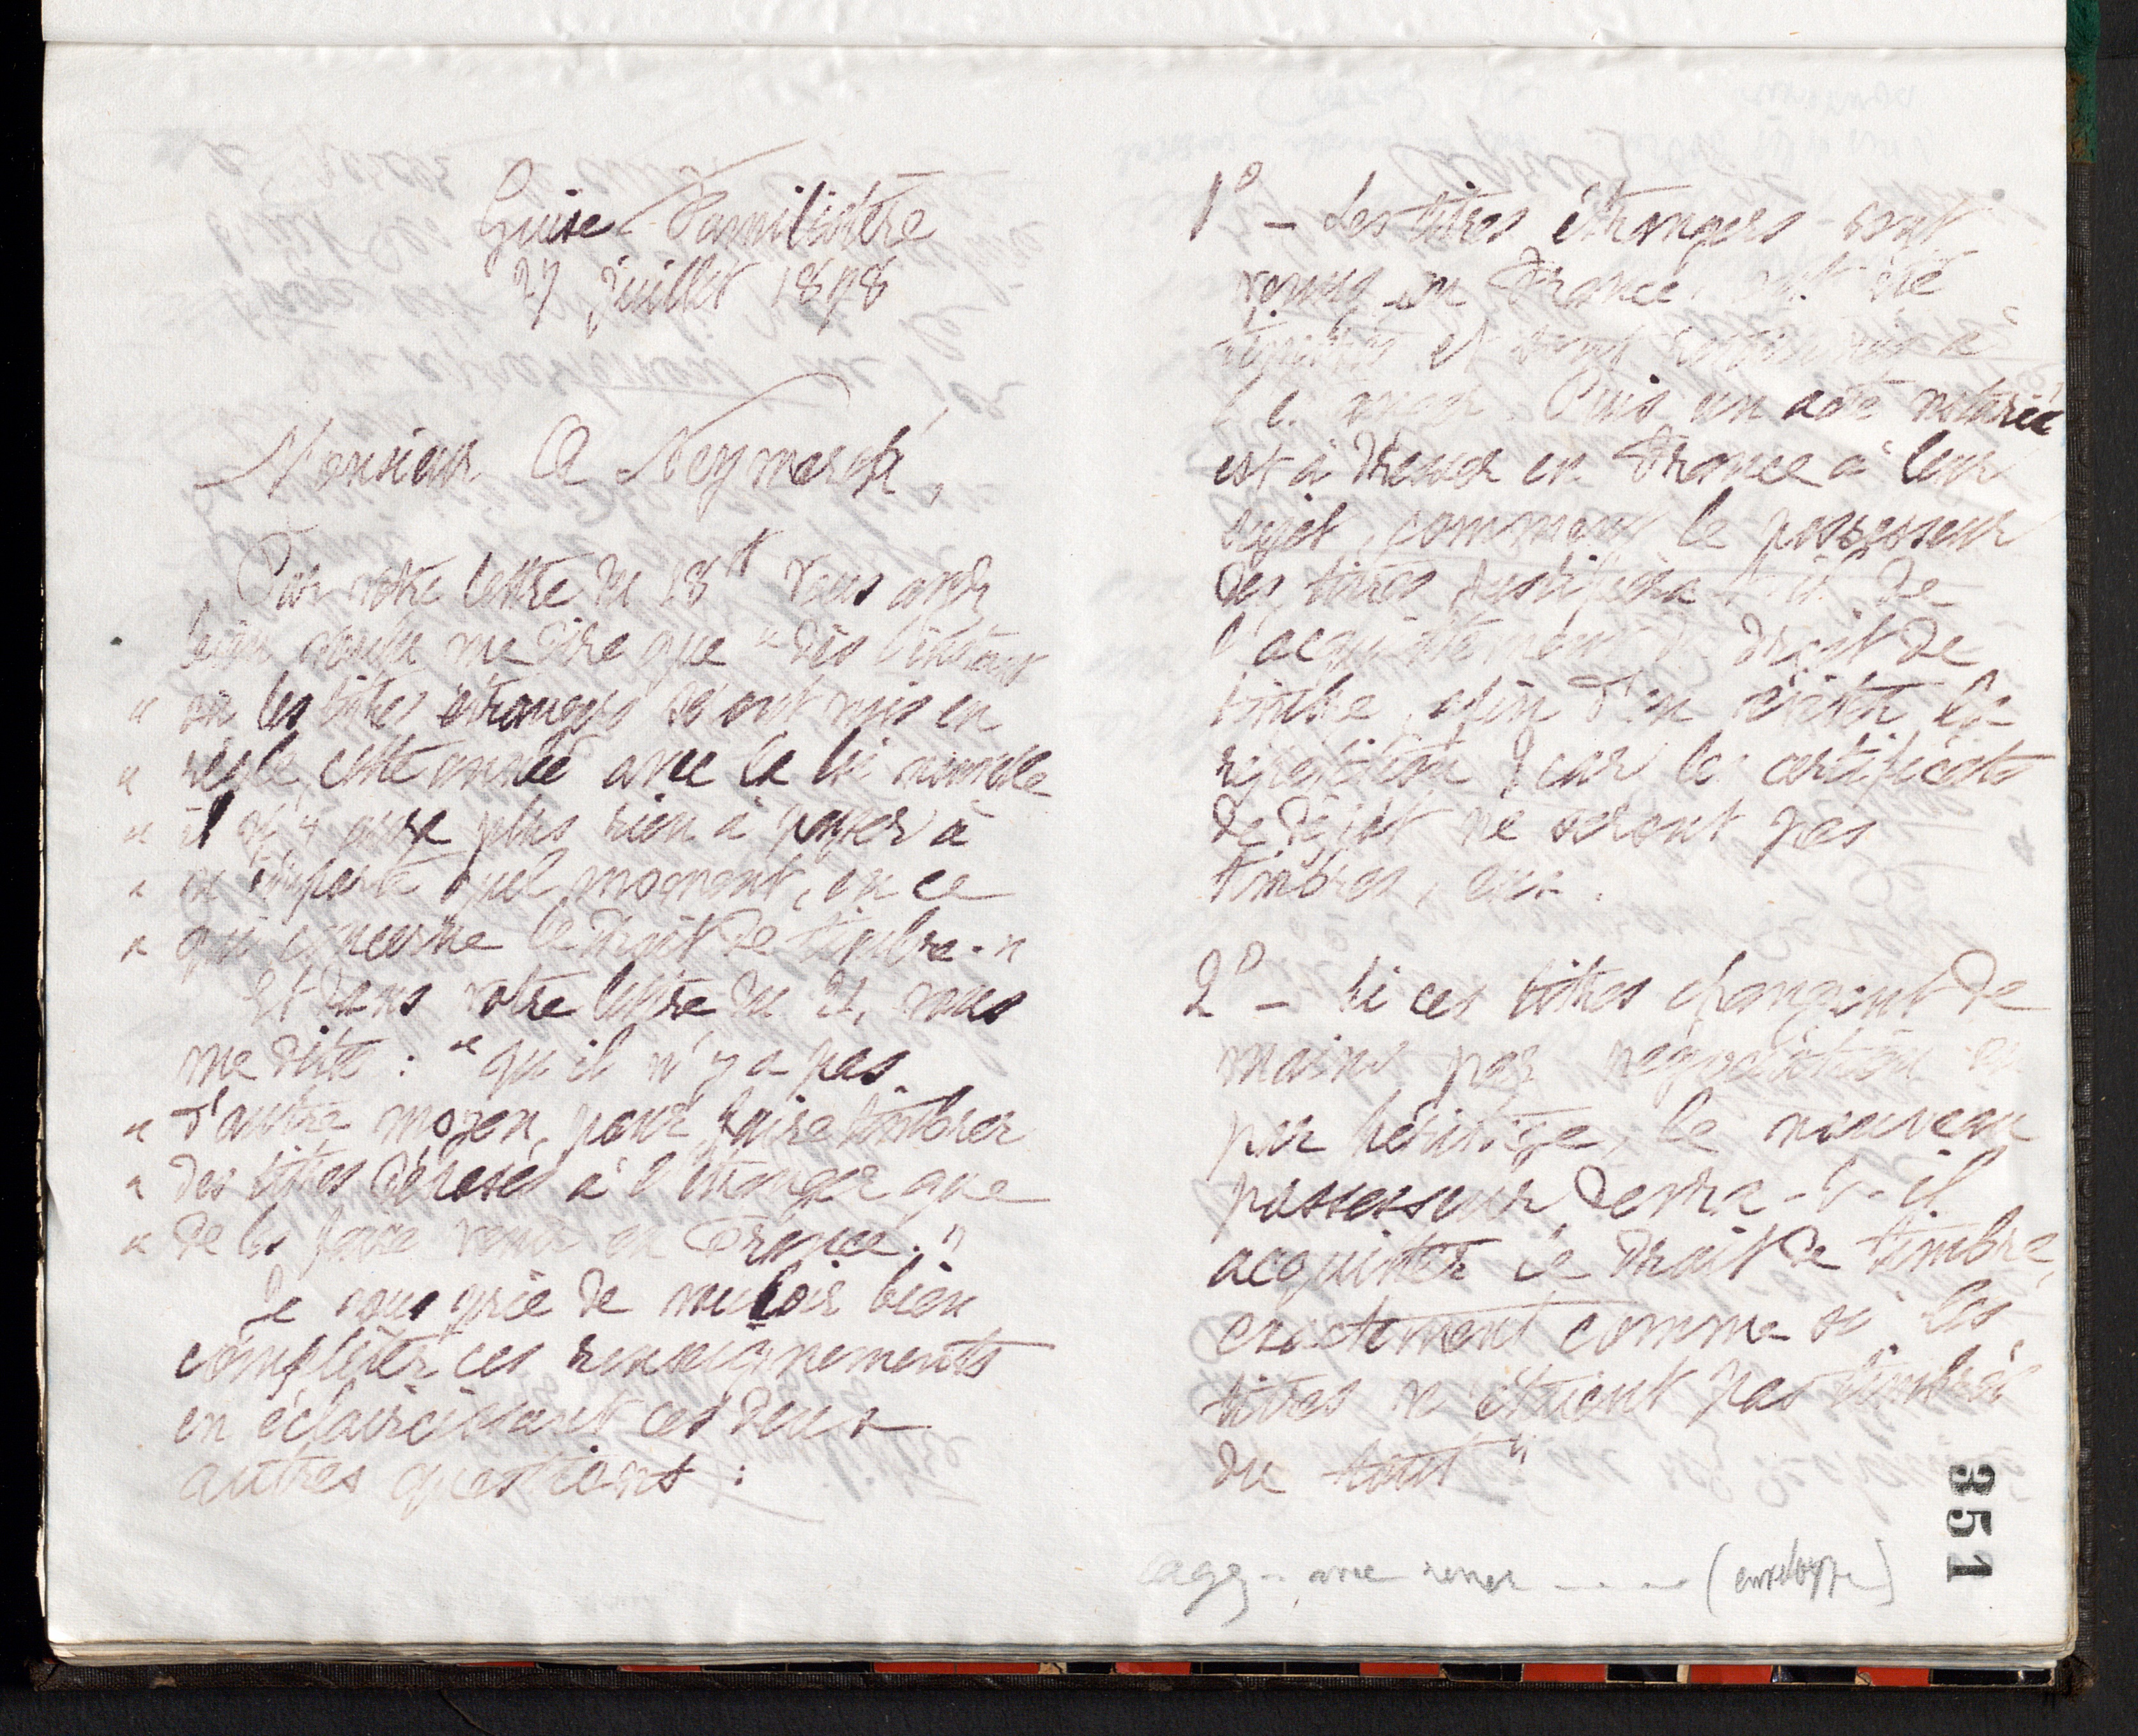 Guise-Familistère
27 juillet 1898
Monsieur A Neymarck,
Par votre lettre du 18 Vous avez
bien voulu me dire que "dès l'instant
" où les titres étrangers se sont mis en
" règle, cette année avec la loi nouvelle
" il n'y aura plus rien à payer à
" n'importe quel moment, en ce
" qui concerne le droit de timbre."
Et dans votre lettre du 21, vous
me dites : "qu'il n'y a pas
" d'autre moyen, pour faire timbrer
" des titres déposés à l'étranger que
" de les faire venir en France."
Je vous prie de vouloir bien
compléter ces renseignements
en éclaircissant ces deux
autres questions :
1° - Les titres étrangers sont
venus en France, ont été
et sont à
Puis un acte notarié
est à dresser en France à leur
sujet, comment le possesseur
des titres justifiera-t-il de
l'acquittement du droit de
timbre, afin d'en éviter la
répétition, car les certificats
de dépôt ne seront pas
timbrés, eux.
2° - Si ces titres changent de
mains par négociation ou
par héritage, le nouveau
possesseur devra-t-il
acquitter le droit de timbre,
exactement comme si les
titres n'étaient pas timbrés
du tout"
(enveloppe)
351